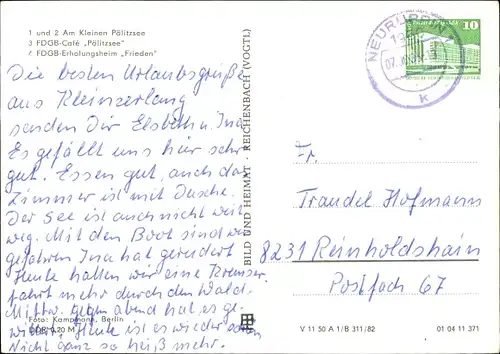 1 und 2 Am Kleinen Pälitzsee
3 FDGB-Café „Pälitzsee"
4 FDGB-Erholungsheim „Frieden"
Die besten Urlaubsgrüße
aus Kleinzerlang
senden Dir Elsbeth u. Ina
Es gefällt uns hier sehr
gut. Essen gut, auch das
Zimmer ist mit Dusche.
Der See ist auch nicht weit
weg. Mit dem Boot sind wir
gefahren Ina hat gerudert
Heute hatten wir eine Kremser
fahrt mehr durch den Wald.
Mittw. gegen abend hat es ge
wittert, Heute ist es wieder schön
Nicht ganz so heiß mehr.
Foto: Kampmann, Berlin
DDR 0,20 M
BILD UND HEIMAT · REICHENBACH (VOGTL)
NEURUPPIN 1
k
10
Fr.
Traudel Hofmann
8231 Reinholdshain
Postfach 67
V 11 50 A 1/B 311/82
01 04 11 371